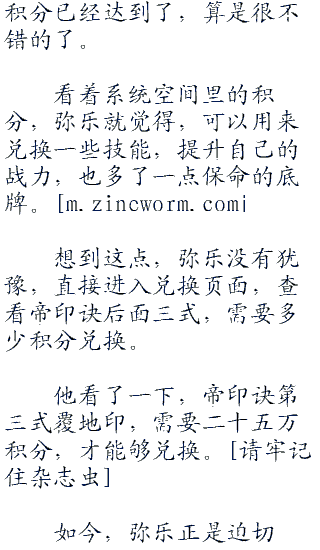 积分已经达到了，算是很不
错的了。
看着系统空间里的积
分，弥乐就觉得，可以用来
兑换一些技能，提升自己的
战力，也多了一点保命的底
牌。[m.zincworm.com]
想到这点，弥乐没有犹
豫，直接进入兑换页面，查
看帝印诀后面三式，需要多
少积分兑换。
他看了一下，帝印诀第
三式覆地印，需要二十五万
积分，才能够兑换。[请牢记
住杂志虫]
如今，弥乐正是迫切